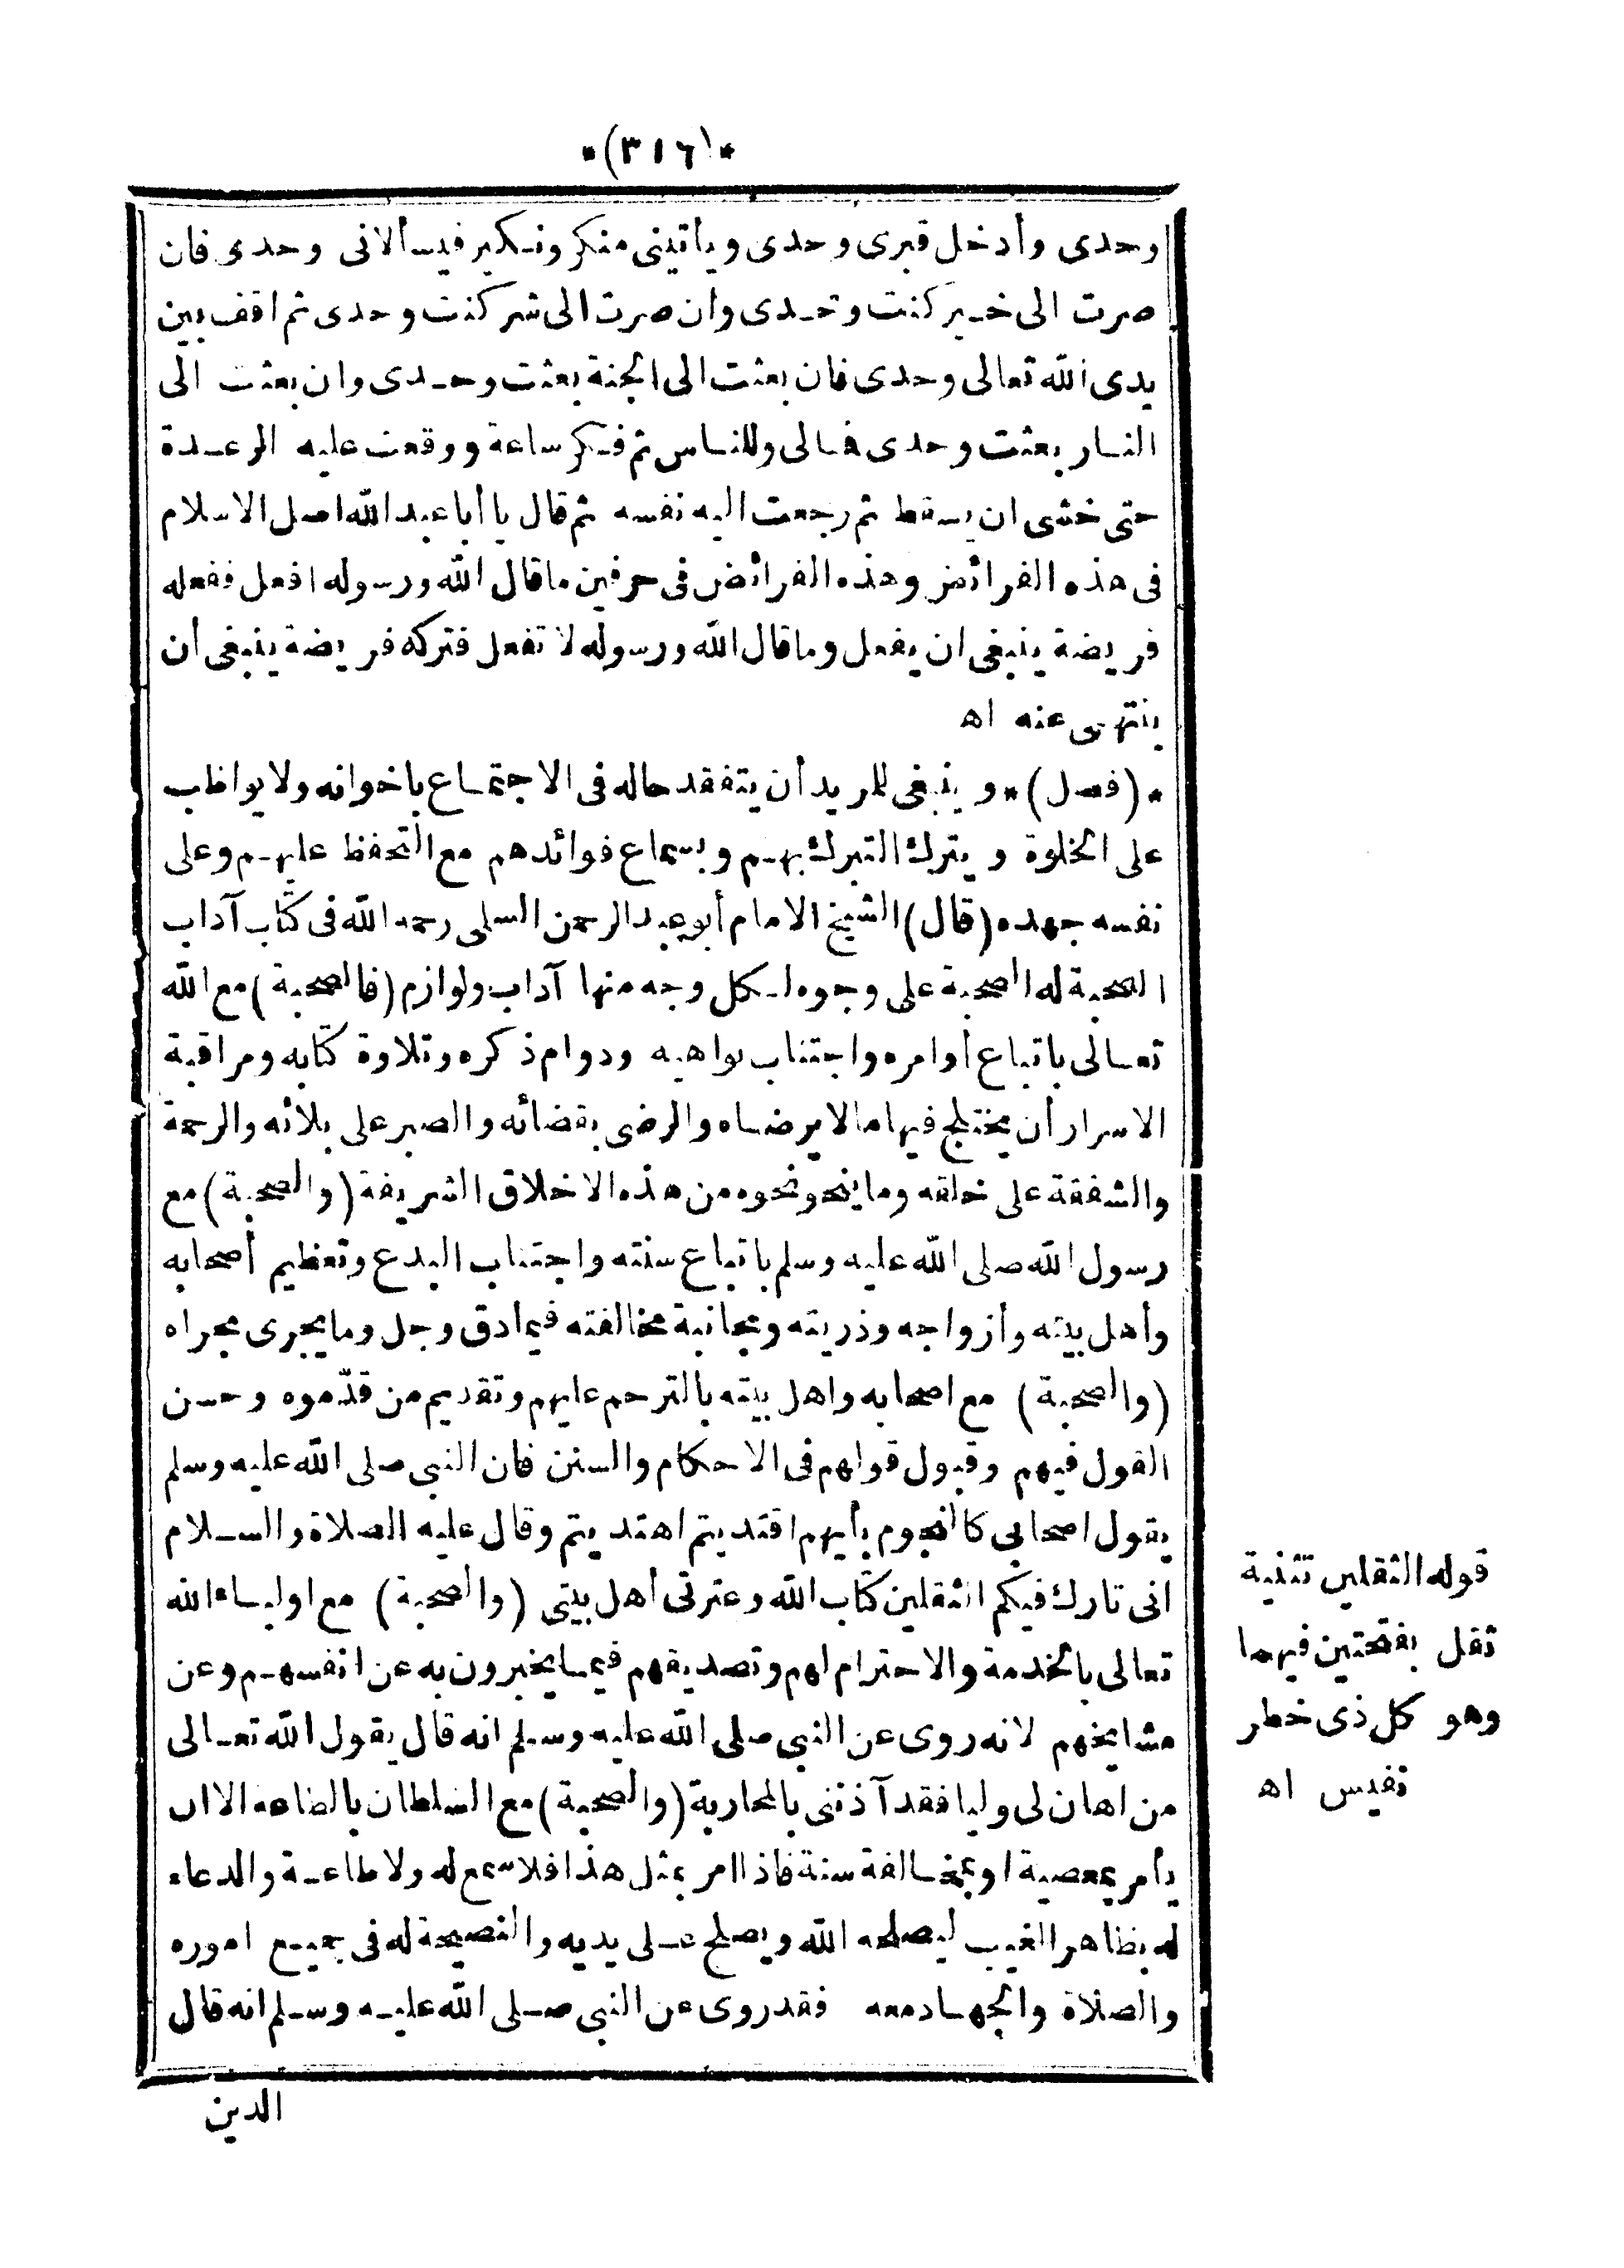 *(٣١٦)*
وحدى وأدخل قبرى وحدى ويأتينى منكر ونكير فيسألانى وحدى فان
صرت الى خير كنت وحدى وان صرت الى شر كنت وحدى ثم اقف بين
يدى الله تعالى وحدى فان بعثت الى الجنة بعثت وحدى وان بعثت الى
النار بعثت وحدى فمالى وللناس ثم فكر ساعة ووقعت عليه الرعدة
حتى خشى ان يسقط ثم رجعت اليه نفسه ثم قال يا أبا عبد الله اصل الاسلام
فى هذه الفرائض وهذه الفرائض فى حرفين ما قال الله ورسوله افعل ففعله
فريضة ينبغى ان يفعل وما قال الله ورسوله لا تفعل فتركه فريضة ينبغى أن
ينتهى عنه اه
*(فصل)* وينبغى للمريد أن يتفقد حاله فى الاجتماع باخوانه ولا يواظب
على الخلوة ويترك التبرك بهم وبسماع فوائدهم مع التحفظ عليهم وعلى
نفسه جهده (قال) الشيخ الامام أبو عبد الرحمن السلمى رحمه الله فى كتاب آداب
الصحبة له الصحبة على وجوه لكل وجه منها آداب ولوازم (فالصحبة) مع الله
تعالى باتباع أوامره واجتناب نواهيه ودوام ذكره وتلاوة كتابه ومراقبة
الاسرار أن يختلج فيها مالا يرضاه والرضى بقضائه والصبر على بلائه والرحمة
والشفقة على خلقه وما ينحو نحوه من هذه الاخلاق الشريفة (والصحبة) مع
رسول الله صلى الله عليه وسلم باتباع سنته واجتناب البدع وتعظيم أصحابه
وأهل بيته وأزواجه وذريته ومجانبة مخالفته فيما دق وجل وما يجرى مجراه
(والصحبة) مع اصحابه واهل بيته بالترحم عليهم وتقديم من قدّموه وحسن
القول فيهم وقبول قولهم فى الاحكام والسنن فان النبى صلى الله عليه وسلم
يقول اصحابى كالنجوم بأيهم اقتديتم اهتديتم وقال عليه الصلاة والسلام
انى تارك فيكم الثقلين كتاب الله وعترتى أهل بيتى (والصحبة) مع اولياء الله
تعالى بالخدمة والاحترام لهم وتصديقهم فيما يخبرون به عن انفسهم وعن
مشايخهم لانه روى عن النبى صلى الله عليه وسلم انه قال يقول الله تعالى
من اهان لى وليا فقد آذننى بالمحاربة (والصحبة) مع السلطان بالطاعة الا ان
يأمر بمعصية او بمخالفة سنة فاذا امر بمثل هذا فلا سمع له ولا طاعة والدعاء
له بظاهر الغيب ليصلحه الله ويصلح على يديه والنصيحة له فى جميع اموره
والصلاة والجهاد معه فقد روى عن النبى صلى الله عليه وسلم انه قال
الدين
قوله الثقلين تثنية
ثقل بفتحتين فيهما
وهو كل ذى خطر
نفيس اه